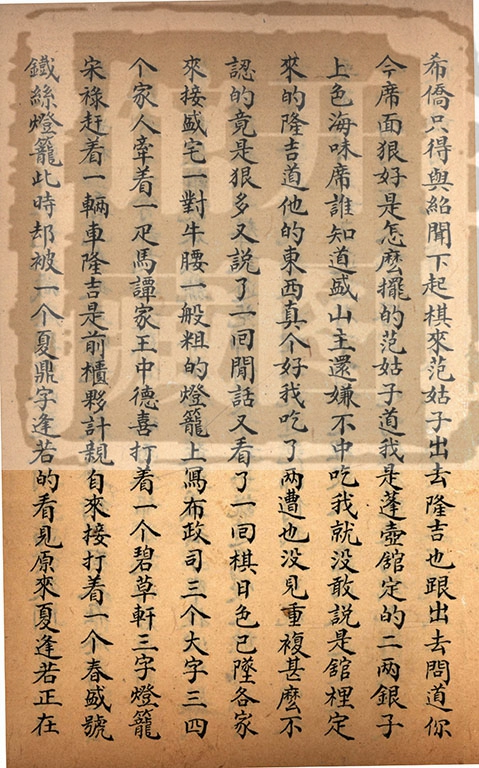 希僑只得與紹聞下起棋來范姑子出去隆吉也跟出去問道你
今席面狠好是怎麽擺的范姑子道我是蓬壺舘定的二兩銀子
上色海味席誰知道盛山主還嫌不中吃我就没敢說是舘裡定
來的隆吉道他的東西真个好我吃了两遭也没見重複甚麽不
認的竟是狠多又說了一囬閒話又看了一囬棋日色已墜各家
來接盛宅一對牛腰一般粗的燈籠上寫布政司三个大字三四
个家人牽着一疋馬譚家王中德喜打着一个碧草軒三字燈籠
宋祿赶着一輛車隆吉是前櫃夥計親自來接打着一个春盛號
鐵絲燈籠此時却被一个夏鼎字逢若的看見原來夏逢若正在